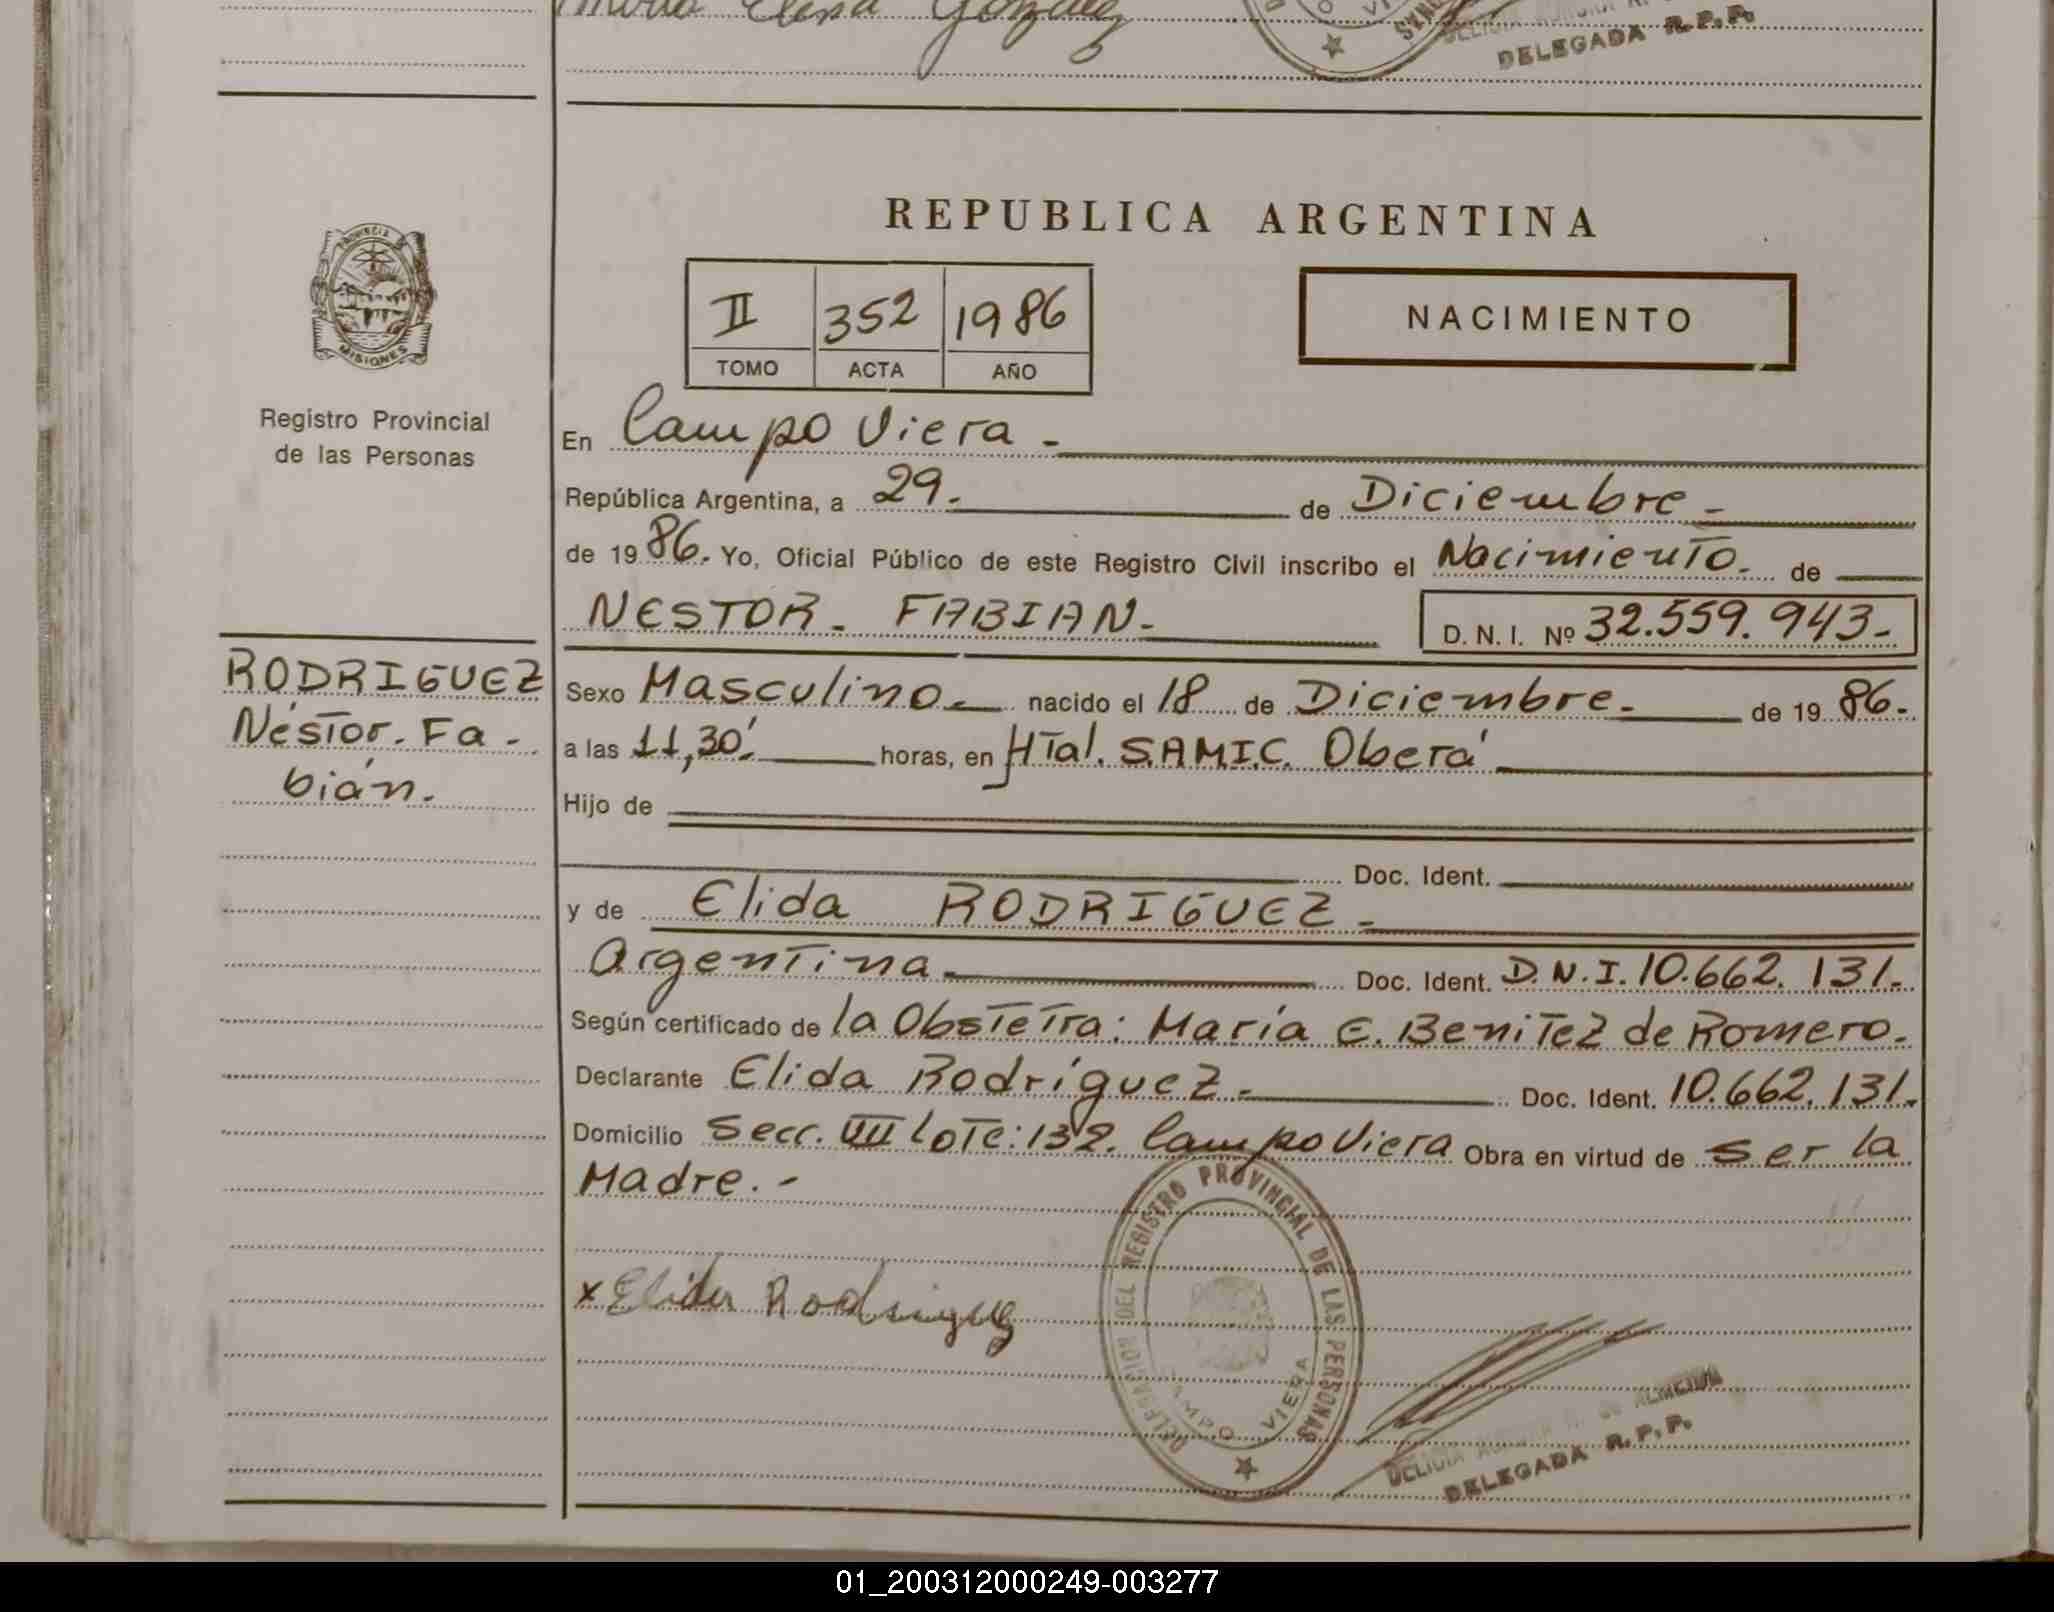 Elena Gonzalez
DELEGADA R.P.P.
REPUBLICA ARGENTINA
PROVINCIA DE
MISIONES
Registro Provincial
de las Personas
II 352 1986
TOMO ACTA AÑO
NACIMIENTO
En Campo Viera -
República Argentina, a 29. de Diciembre -
de 1986. Yo, Oficial Público de este Registro Civil inscribo el Nacimiento. de
NESTOR - FABIAN - D. N. I. Nº 32.559.943-
RODRIGUEZ
Néstor. Fa -
bián.
Sexo Masculino - nacido el 18 de Diciembre. de 1986.
a las 11,30' horas, en Htal. S.A.M.I.C. Oberá
Hijo de
Doc. Ident.
y de Elida RODRIGUEZ -
Argentina Doc. Ident. D.N.I. 10.662.131.
Según certificado de la Obstetra: María E. Benitez de Romero.
Declarante Elida Rodríguez - Doc. Ident. 10.662.131.
Domicilio Secc. VIII Lote: 132. Campo Viera Obra en virtud de ser la
Madre. -
x Elida Rodriguez
DELEGACION DEL REGISTRO PROVINCIAL DE LAS PERSONAS
CAMPO VIERA
DELICIA DE ALMEIDA
DELEGADA R.P.P.
01_200312000249-003277